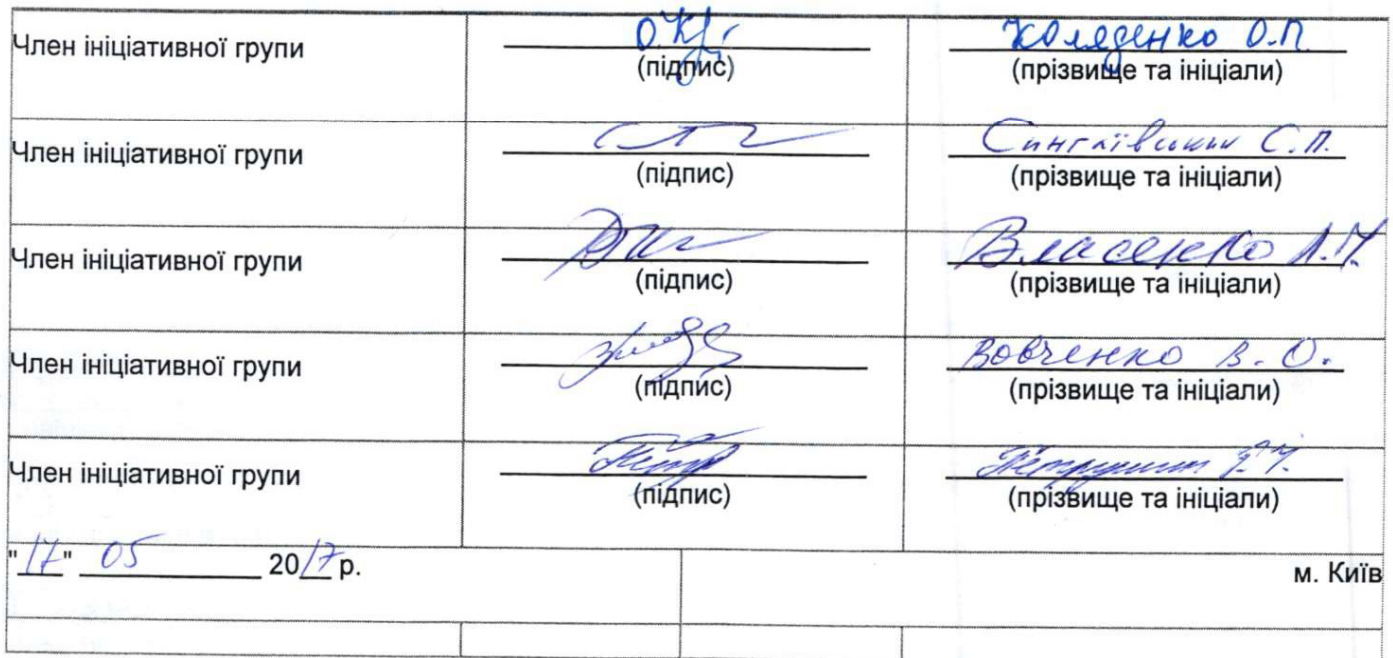 Член ініціативної групи
(підпис)
Коляденко О.П.
(прізвище та ініціали)
Член ініціативної групи
(підпис)
С.П.
(прізвище та ініціали)
Член ініціативної групи
(підпис)
Власенко
(прізвище та ініціали)
Член ініціативної групи
(підпис)
Вовченко В.О.
(прізвище та ініціали)
Член ініціативної групи
(підпис)
(прізвище та ініціали)
"17" 05 2017 р. м. Київ